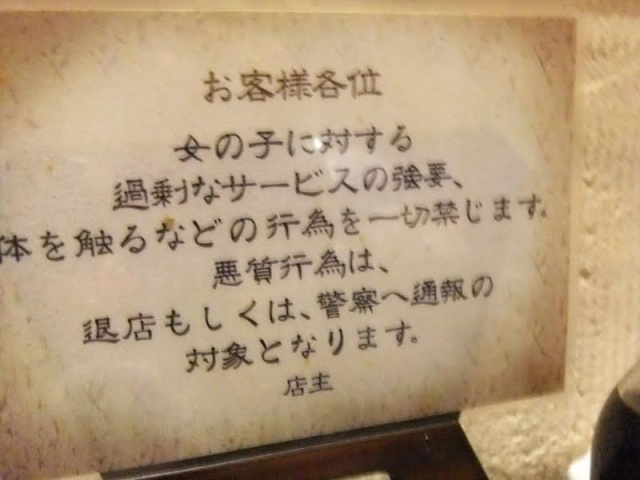 お客様各位
女の子に対する
過剰なサービスの強要、
体を触るなどの行為を一切禁じます。
悪質行為は、
退店もしくは、警察へ通報の
対象となります。
店主